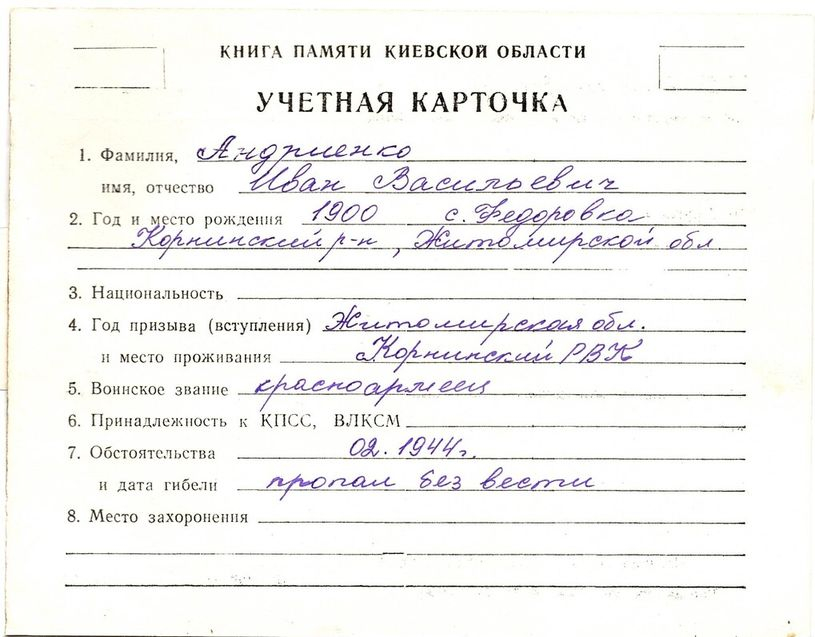 КНИГА ПАМЯТИ КИЕВСКОЙ ОБЛАСТИ
УЧЕТНАЯ КАРТОЧКА
1. Фамилия, Андриенко
имя, отчество Иван Васильевич
2. Год и место рождения 1900 с. Федоровка
Корнинский р-н, Житомирской обл.
3. Национальность
4. Год призыва (вступления) Житомирская обл.
и место проживания Корнинский РВК
5. Воинское звание красноармеец
6. Принадлежность к КПСС, ВЛКСМ
7. Обстоятельства 02.1944г.
и дата гибели пропал без вести
8. Место захоронения